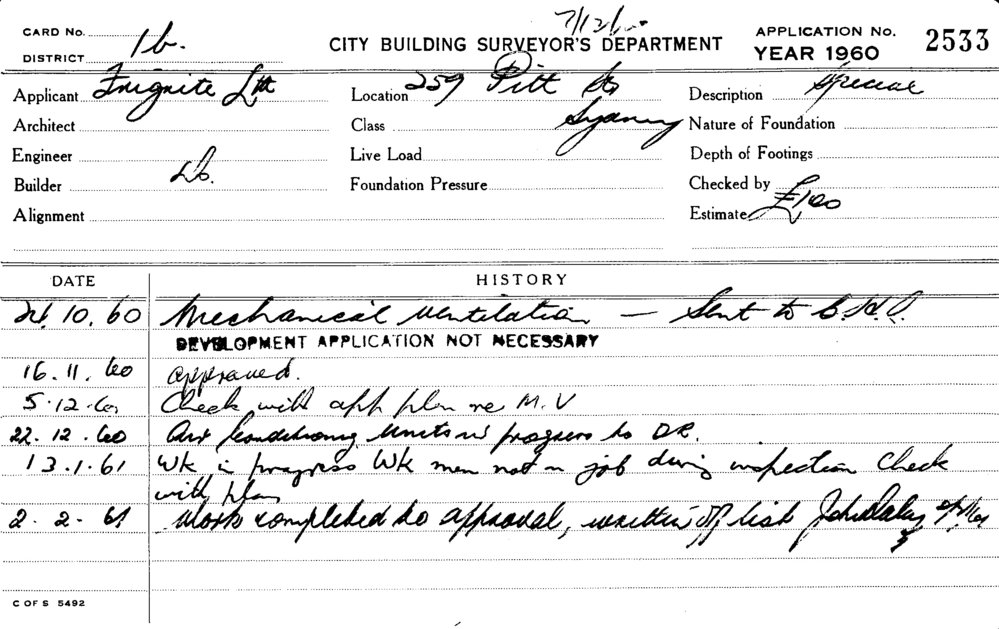 7/12/60
CARD No.
DISTRICT 1b.
CITY BUILDING SURVEYOR'S DEPARTMENT
APPLICATION No. 2533
YEAR 1960
Applicant Frigrite Ltd Location 259 Pitt St Description Special
Architect Class Sydney Nature of Foundation
Engineer Live Load Depth of Footings
Builder Do. Foundation Pressure Checked by
Alignment Estimate £100
DATE HISTORY
21.10.60 Mechanical Ventilation — Sent to C.H.O.
DEVELOPMENT APPLICATION NOT NECESSARY
16.11.60 approved.
5.12.60 Check with app plan re M.V
22.12.60 Air Conditioning Units in progress to
13.1.61 Wk in progress Wk men not on job during inspection Check
with plan
2.2.61 Work completed to approval, written off list
C OF S 5492